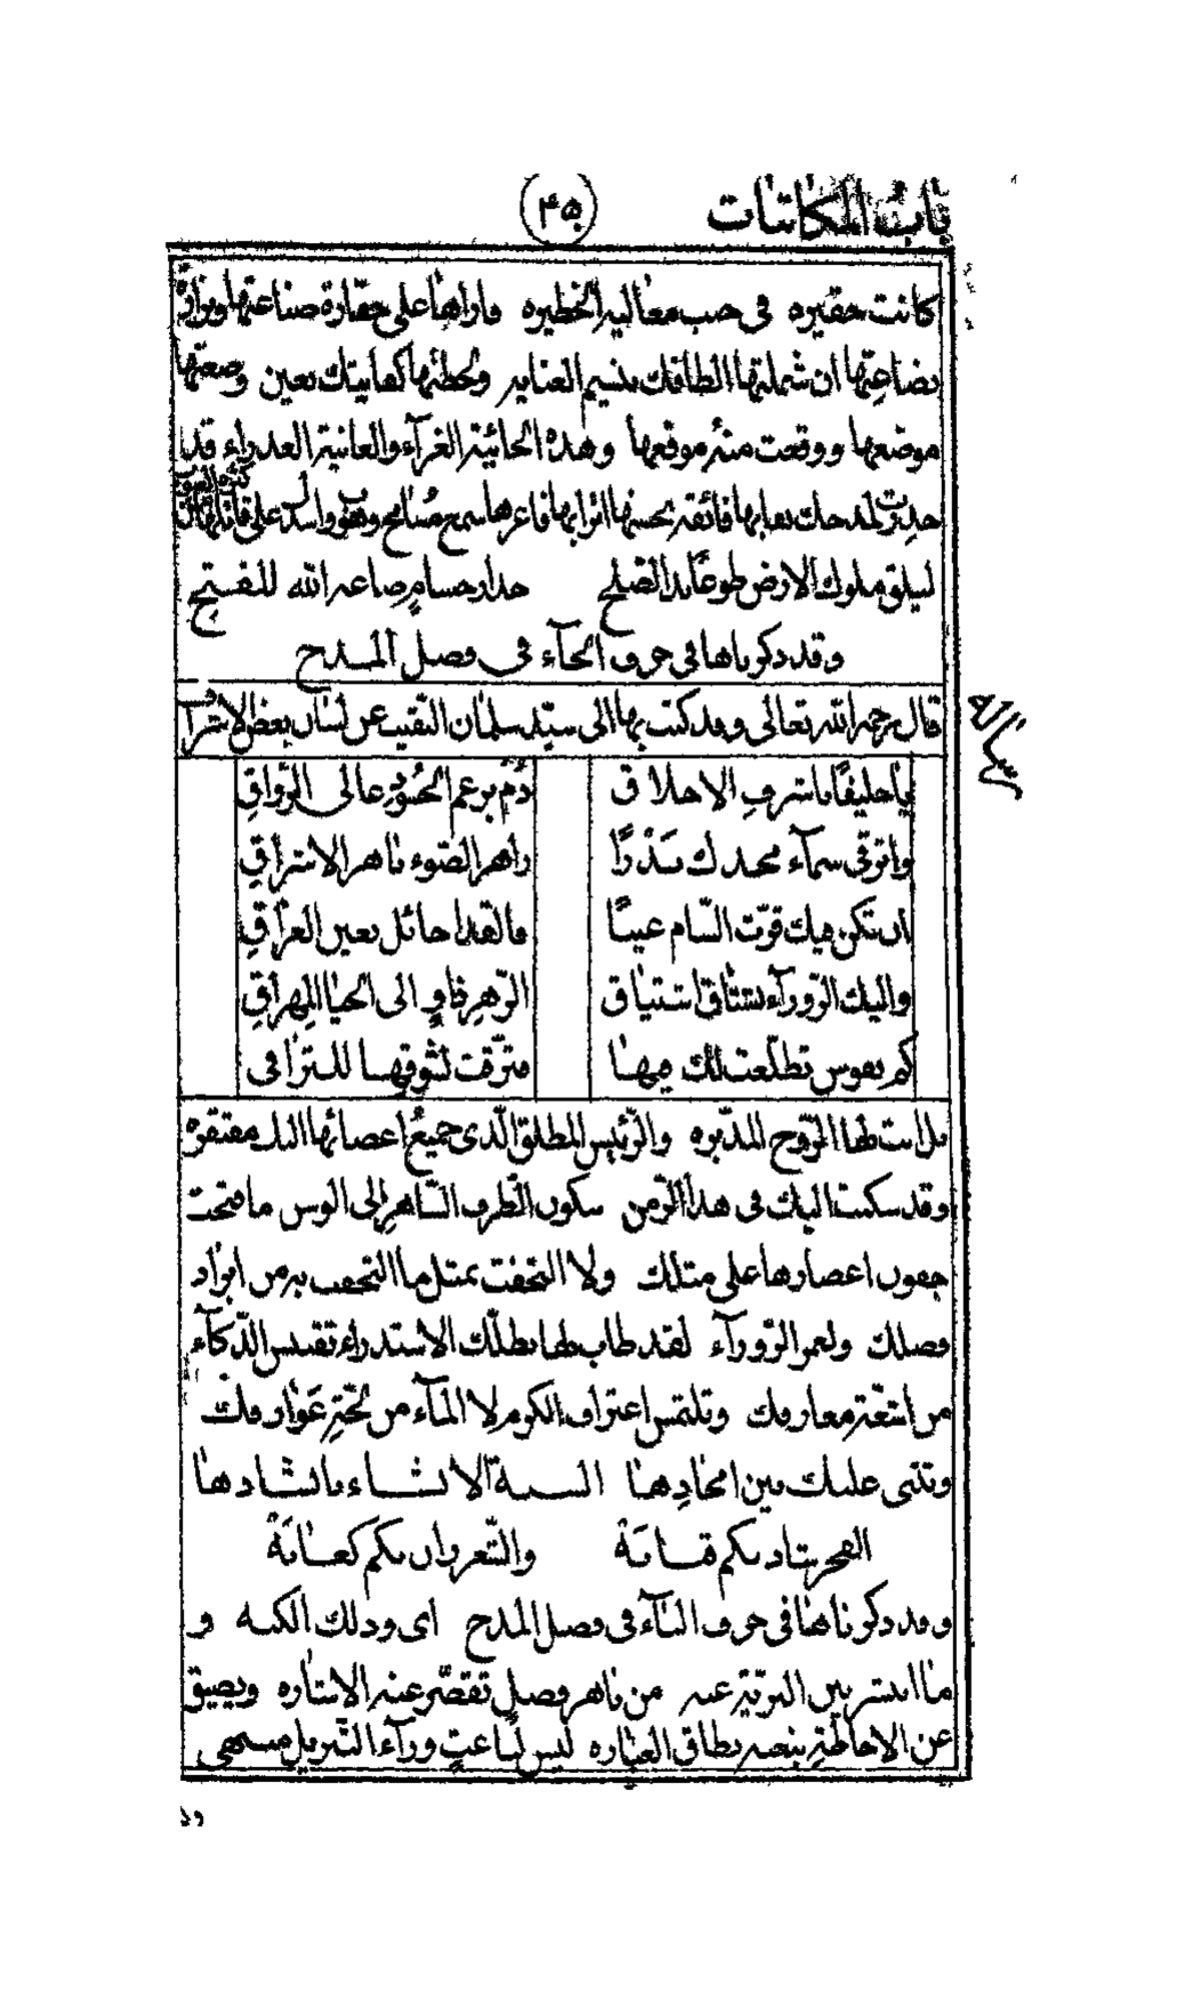 باب المكاتبات
٤٥
كانت حقيره في جنب معاليه الخطيره واراها على حقارة صناعتها ونزارة
بضاعتها ان شملتها الطافك بنسيم العنايه ولحظتها كفايتك بعين وضعتها
موضعها ووقعت منه موقعها وهذه الحائية الغرآء والغانية العذراء قد
فائقة بحسنها اترابها فاعرها سمع واسدل على قائلها
ملوك الارض طوعا بدا الصلح حذار حسام صاغه الله للفتح
وقد ذكرناها في حرف الحآء في فصل المدح
رسالة
قال رحمه الله تعالى وقد كتب بها الى سيد سلمان النقيب عن لسان بعض الاشراف
يا حليفا باشرف الاخلاق دم برغم الحسود عالى الرواق
وابق في سمآء مجدك بدرا زاهر الضوء باهر الاشراق
ان تكن فيك قرت الشام عينا فالقذا حائل بعين العراق
واليك الزورآء تشتاق اشتياق الزهر ذاو الى الحيا المهراق
كم نفوس تطلعت لك فيها مترقت لشوقها للتراقى
بل انت لها الروح المدبره والرئيس المطلق الذى جميع اعضائها اليك مفتقره
وقد سكنت اليك في هذا الزمن سكون الطرف الساهر الى الوسن ما فتحت
جفون اعصارها على مثلك ولا التحفت بمثل ما التحفت به من ابراد
فضلك ولعمر الزورآء لقد طاب لها بظلك الاستذراء تقتبس الذكآء
من اشعة معارفك وتلتمس اغتراف الكرم لا المآء من لجة عوارفك
وتثنى عليك بين امجادها السنة الانشاء بانشادها
الفخر شاد بكم قبابه والشعر زان بكم كعابه
وقد ذكرناها في حرف البآء في فصل المدح اى وذلك الكنه و
ما انتشر بين البرية عنه من باهر فضل تقصر عنه الاشاره ويضيق
عن الاحاطة بنعته نطاق العباره ليس لباعث ورآء التنزيل منتهى